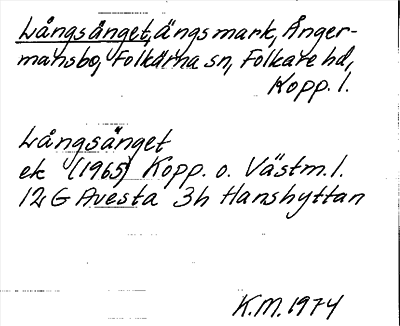 Långsänget, ängsmark, Ånger-
mansbo, Folkärna sn, Folkare hd,
Kopp. l.
Långsänget
ek (1965) Kopp. o. Västm. l.
12G Avesta 3h Hanshyttan
K.M. 1974